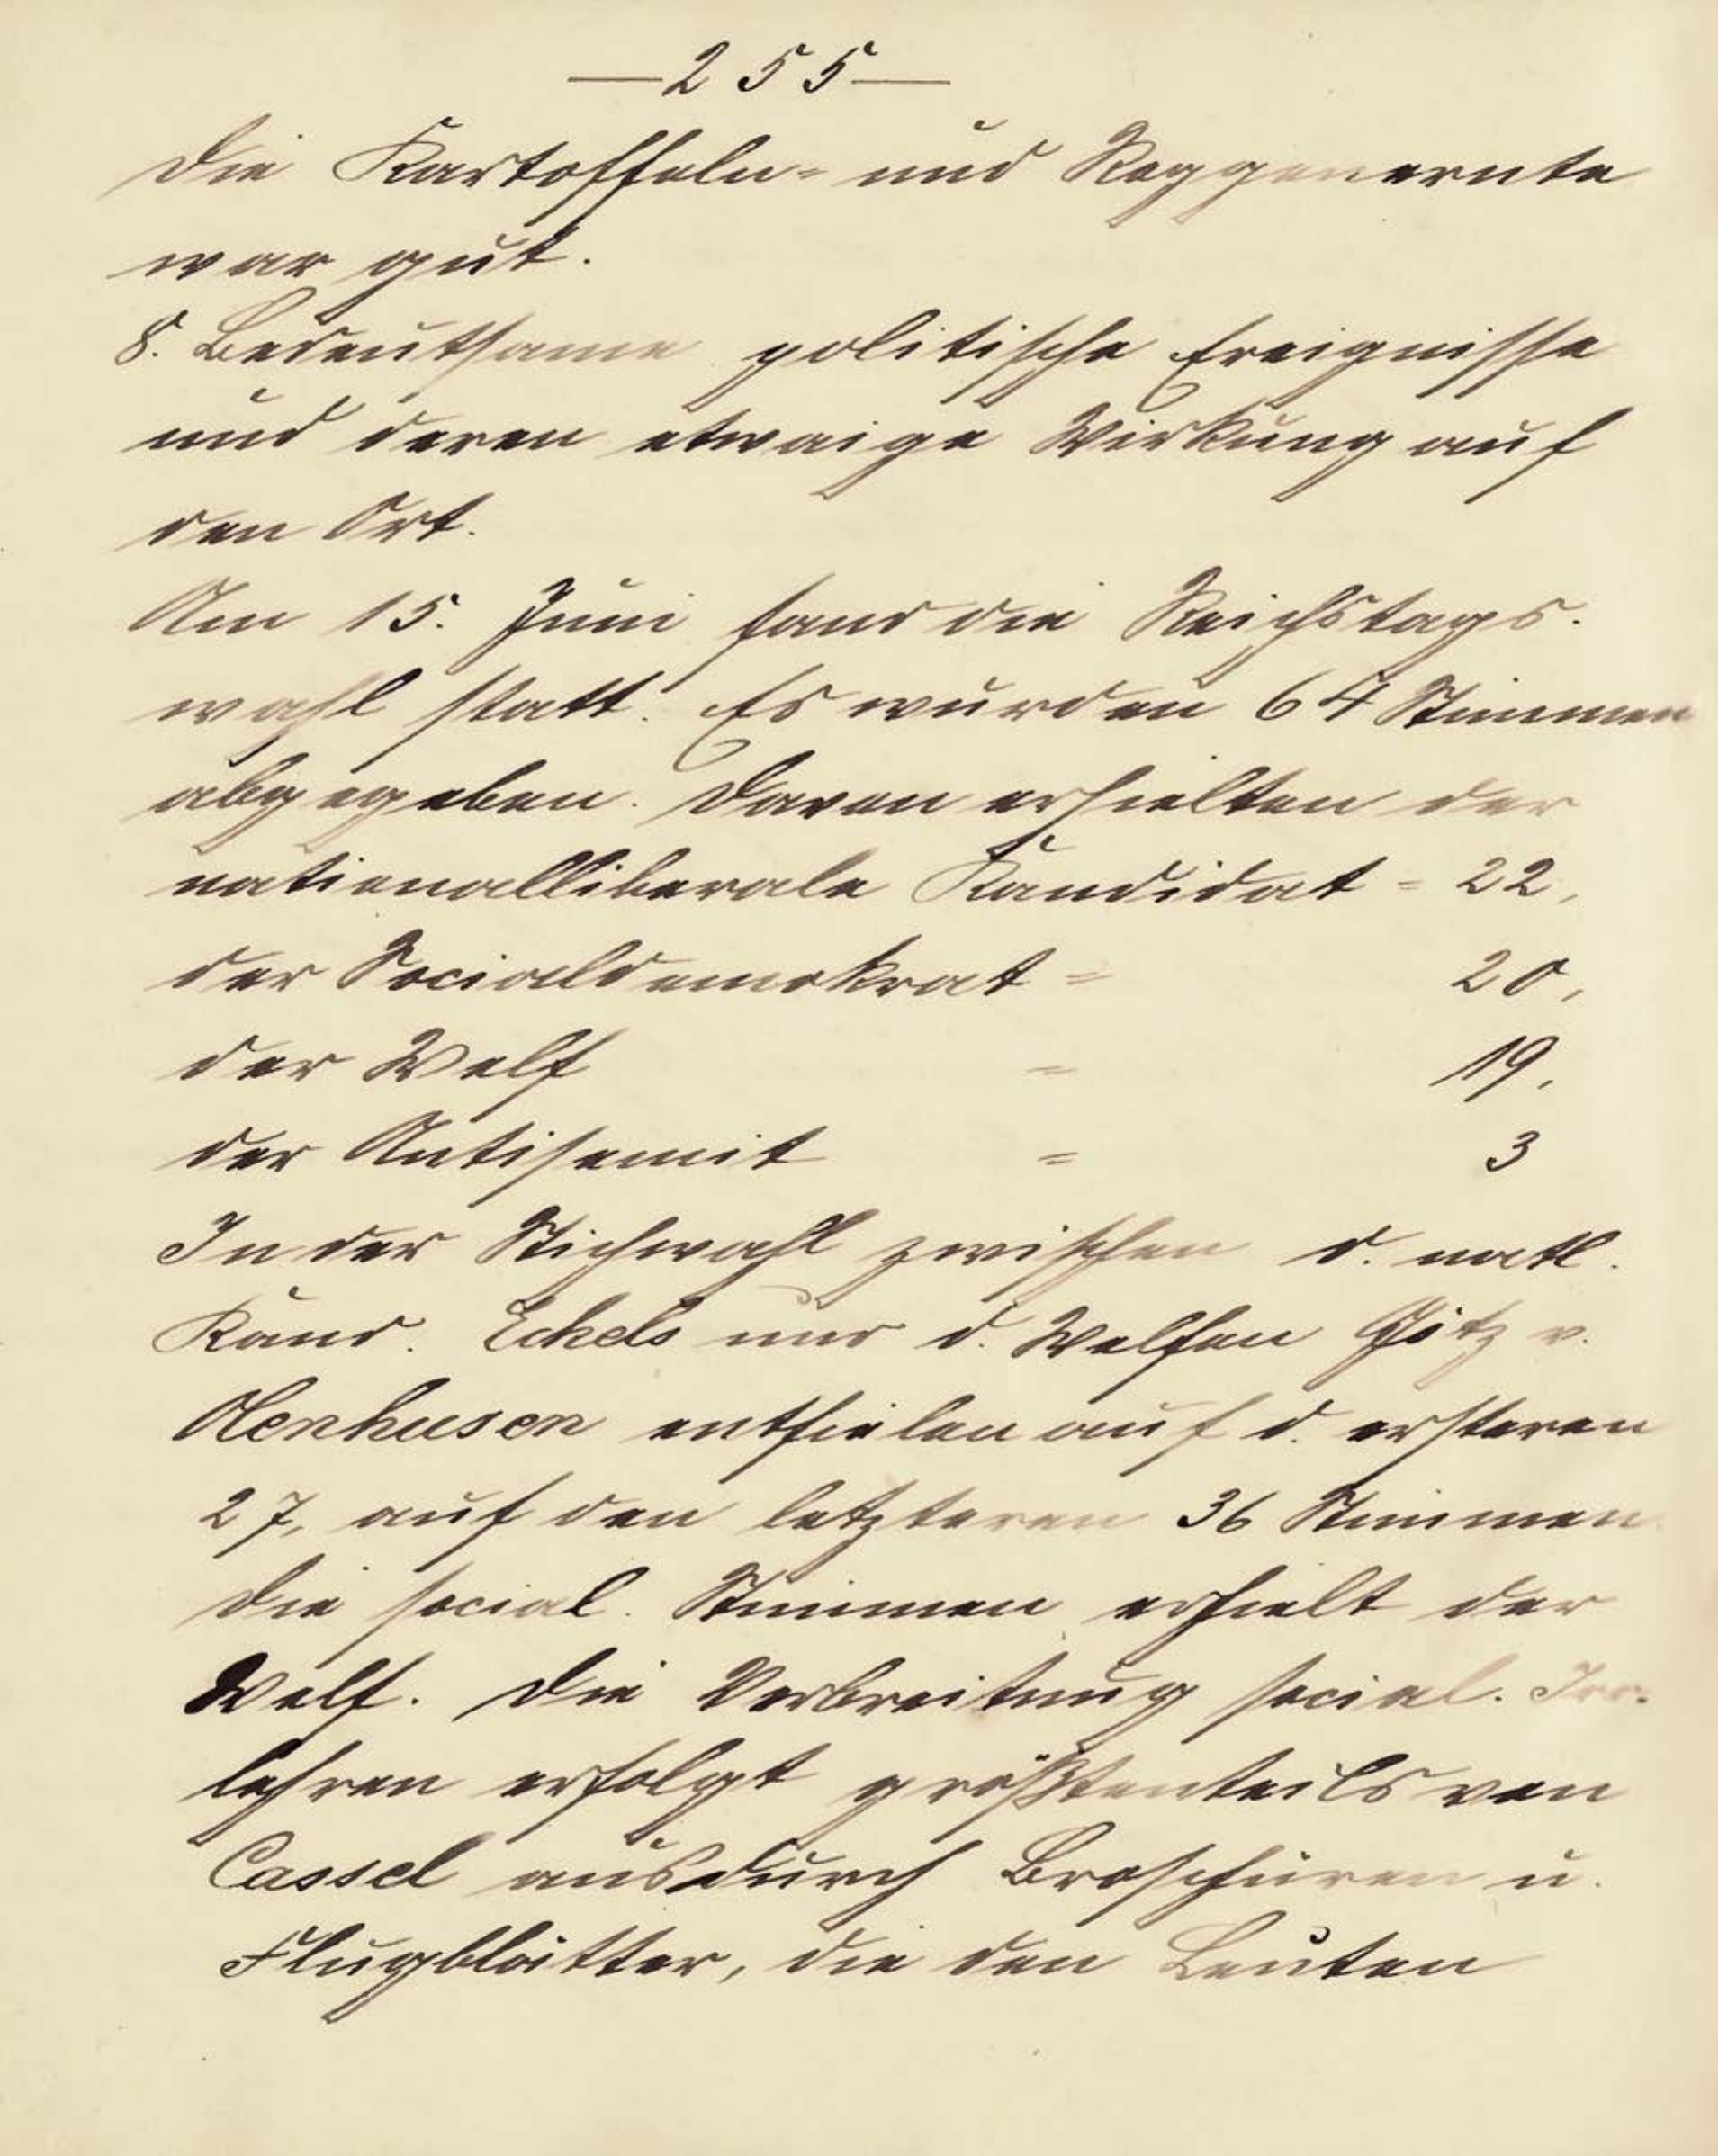 — 255 —
Die Kartoffeln- und Roggenernte
war gut.
8. Bedeutsame politische Ereignisse
und deren etwaige Wirkung auf
den Ort.
Am 15. Juni fand die Reichstags-
wahl statt. Es wurden 64 Stimmen
abgegeben. Davon erhielten der
nationalliberale Kandidat = 22,
der Socialdemokrat = 20,
der Welf = 19,
der Antisemit = 3
In der Stichwahl zwischen d. natl.
Kand. Eckels und d. Welfen Götz v.
Olenhusen entfielen auf d. ersteren
27, auf den letzteren 36 Stimmen
Die social. Stimmen erhielt der
Welf. Die Verbreitung social. Irr-
lehren erfolgt größtenteils von
Cassel aus durch Broschüren u.
Flugblätter, die den Leuten